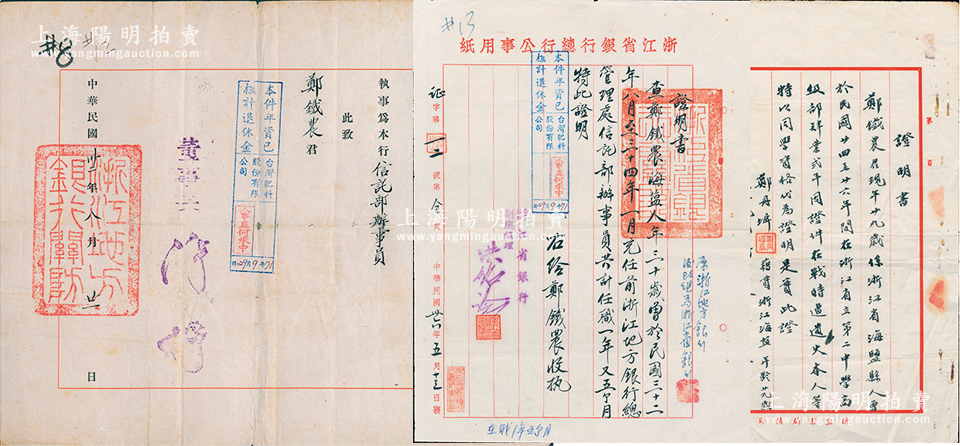 證明書
鄭鐵農君現年廿九歲係浙江省海鹽縣人曾
於民國廿四至廿六年間在浙江省立第二中學高
級部肄業弍年因證件在戰時遭遺失本人等
特以同學資格代為證明是實此證
鄭丹埠
籍貫浙江海鹽年齡廿九歲
#13
浙江省銀行總行公事用紙
證明書
查鄭鐵農海鹽人年三十歲曾於民國三十二
年八月至三十四年一月充任前浙江地方銀行總
管理處信託部辦事員共計任職一年又五個月
特此證明
右給鄭鐵農收執
浙江省銀行
證字第一二號第全頁
中華民國卅六年五月十三日發
原浙江地方銀行
本件年資已
核計退休金
台灣肥料
股份有限
公司
#8
執事為本行信託部辦事員
此致
鄭鐵農君
董事長
中華民國卅二年八月廿日
浙江地方
銀行關防
本件年資已
核計退休金
台灣肥料
股份有限
公司
上海陽明拍賣
www.yangmingauction.com
上海陽明拍賣
www.yangmingauction.com
上海陽明拍賣
www.yangmingauction.com